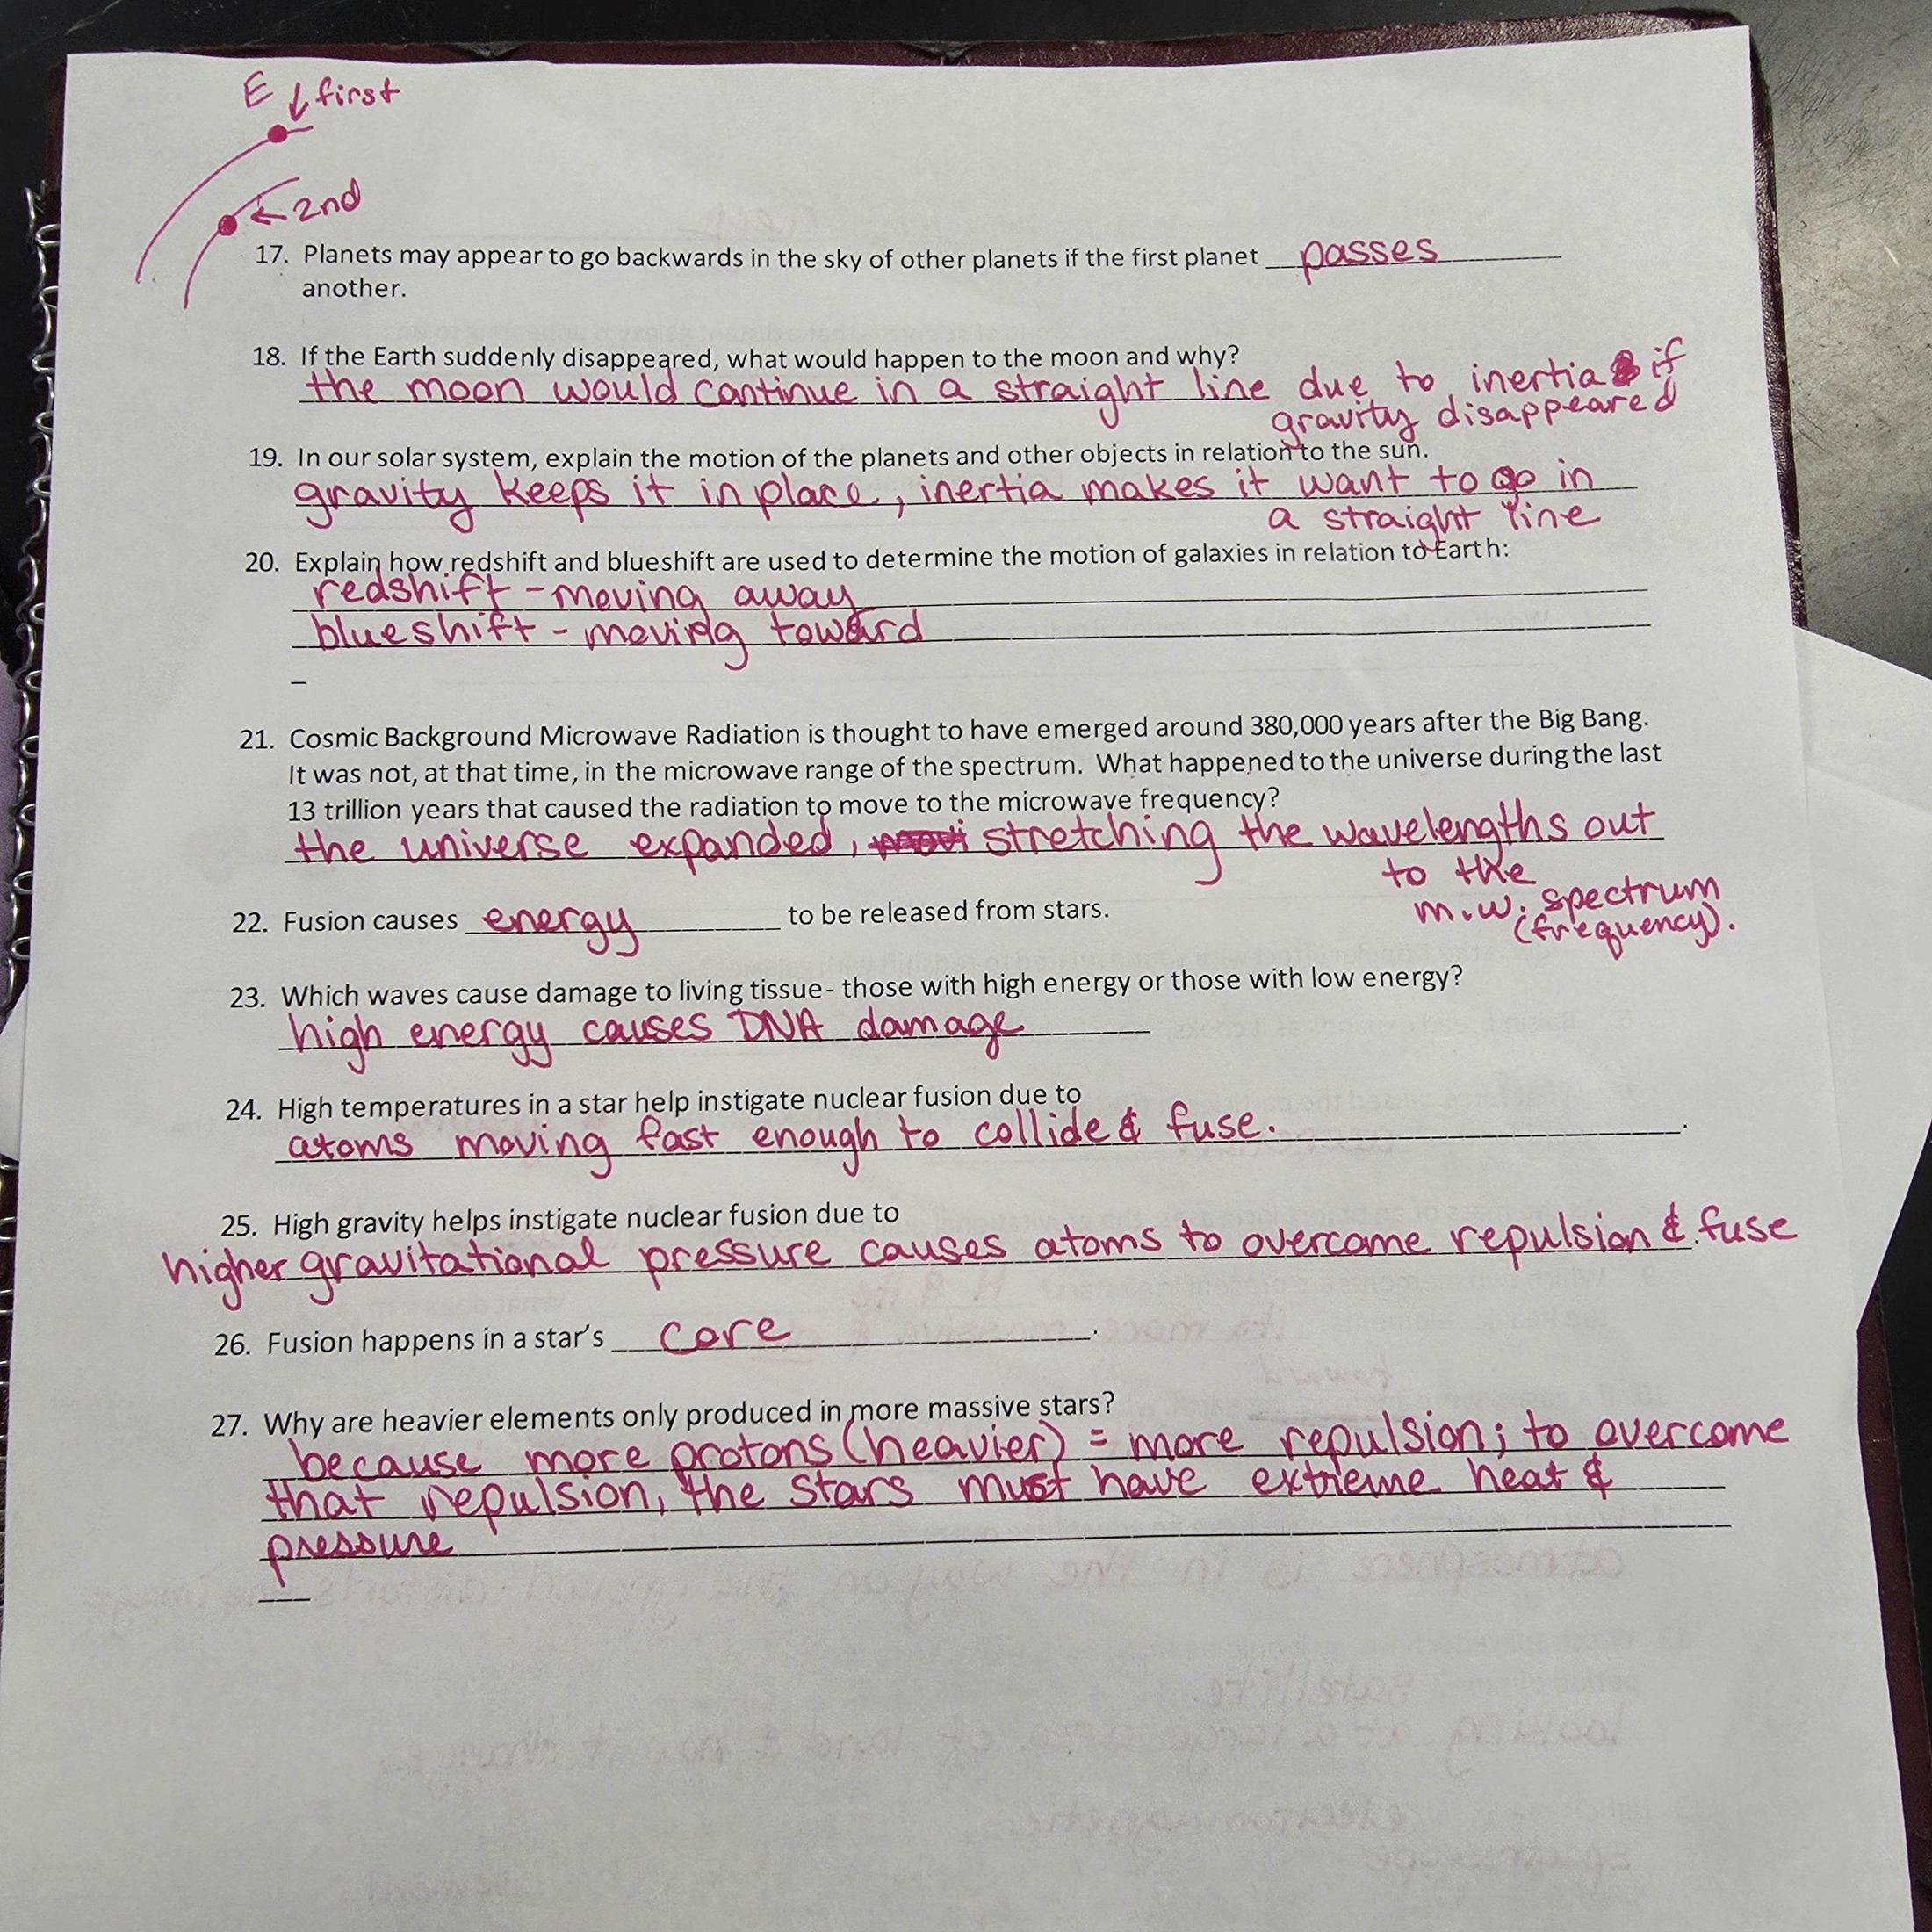 E ↓ first
← 2nd
17. Planets may appear to go backwards in the sky of other planets if the first planet passes
another.
18. If the Earth suddenly disappeared, what would happen to the moon and why?
the moon would continue in a straight line due to inertia if
gravity disappeared
19. In our solar system, explain the motion of the planets and other objects in relation to the sun.
gravity keeps it in place, inertia makes it want to go in
a straight line
20. Explain how redshift and blueshift are used to determine the motion of galaxies in relation to Earth:
redshift - moving away
blueshift - moving toward
21. Cosmic Background Microwave Radiation is thought to have emerged around 380,000 years after the Big Bang.
It was not, at that time, in the microwave range of the spectrum. What happened to the universe during the last
13 trillion years that caused the radiation to move to the microwave frequency?
the universe expanded, stretching the wavelengths out
to the
m.w. spectrum
(frequency).
22. Fusion causes energy to be released from stars.
23. Which waves cause damage to living tissue- those with high energy or those with low energy?
high energy causes DNA damage
24. High temperatures in a star help instigate nuclear fusion due to
atoms moving fast enough to collide & fuse.
25. High gravity helps instigate nuclear fusion due to
higher gravitational pressure causes atoms to overcome repulsion & fuse
26. Fusion happens in a star's core.
27. Why are heavier elements only produced in more massive stars?
because more protons (heavier) = more repulsion; to overcome
that repulsion, the stars must have extreme heat &
pressure